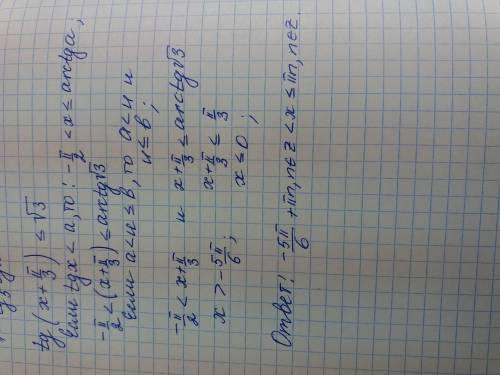 tg(x + π/3) ≤ √3
если tgx < a, то: -π/2 < x ≤ arctga;
-π/2 < (x + π/3) ≤ arctg√3
если a < u ≤ b, то a < u и
u ≤ b;
-π/2 < x + π/3 и x + π/3 ≤ arctg√3
x + π/3 ≤ π/3
x > -5π/6; x ≤ 0;
Ответ: -5π/6 + πn, n∈z < x ≤ πn, n∈z.